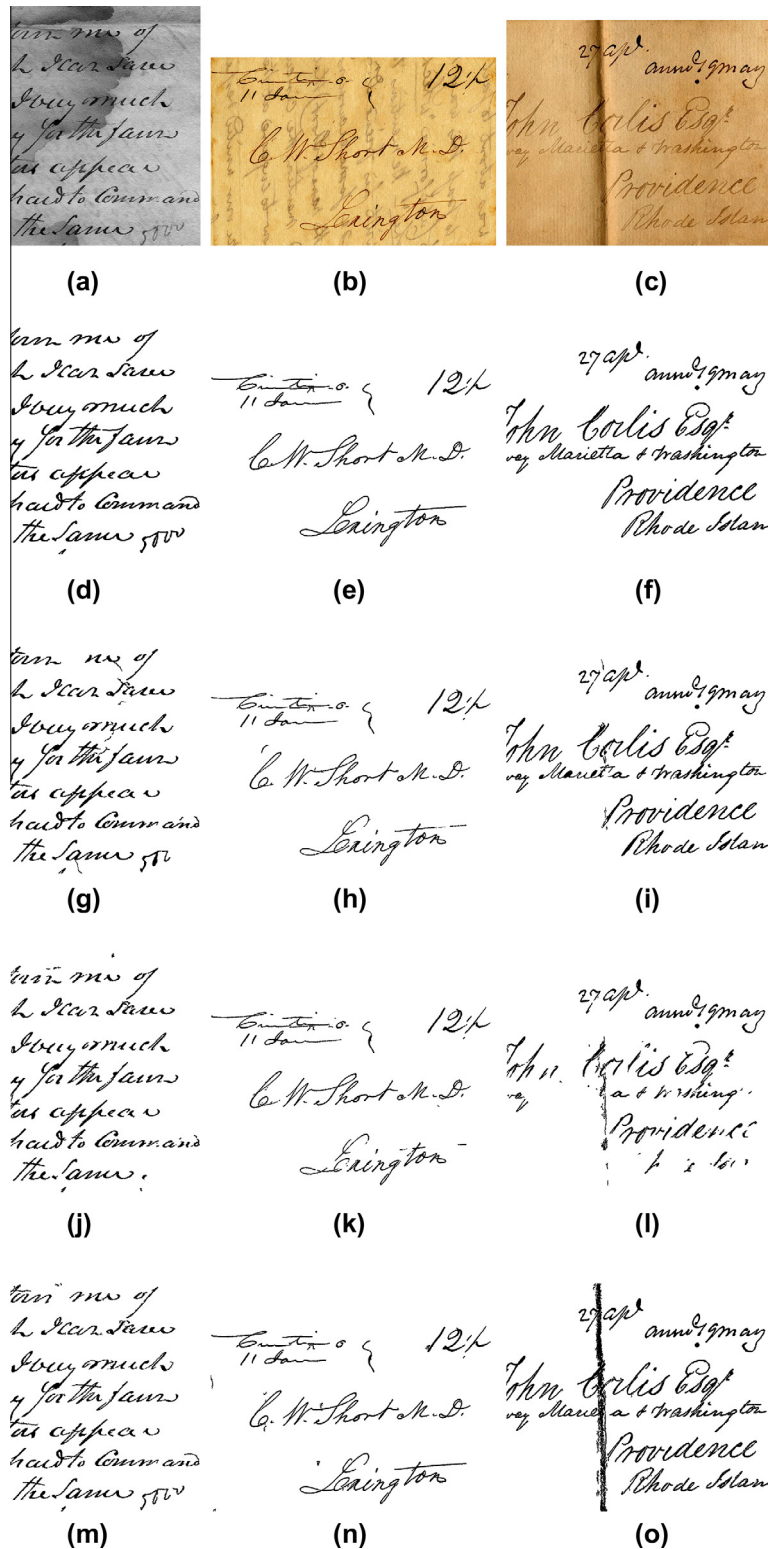 me of
h I can Saver
much
y for the favr
tus appear
hard to Command
the Same 5000
(a)
12½
11 Jan
C. W. Short M. D.
Lexington
(b)
27 apl.
annd 19 may
John Corlis Esqr.
vey Marietta & Washington
Providence
Rhode Islan
(c)
me of
h I can Saver
much
y for the favr
tus appear
hard to Command
the Same 5000
(d)
12½
11 Jan
C. W. Short M. D.
Lexington
(e)
27 apl.
annd 19 may
John Corlis Esqr.
vey Marietta & Washington
Providence
Rhode Islan
(f)
of
h I can Saver
much
y for the favr
tus appear
hard to Command
the Same
(g)
12½
11 Jan
C. W. Short M. D.
Lexington
(h)
27 apl.
annd 19 may
John Corlis Esqr.
vey Marietta & Washington
Providence
Rhode Islan
(i)
me of
h I can Saver
much
y for the favr
tus appear
hard to Command
the Same
(j)
12½
11 Jan
C. W. Short M. D.
Lexington
(k)
27 apl.
annd 19 may
John Corlis Esqr.
vey a & Washing
Providence
(l)
me of
h I can Saver
much
y for the favr
tus appear
hard to Command
the Same 5000
(m)
12½
11 Jan
C. W. Short M. D.
Lexington
(n)
27 apl.
annd 19 may
John Corlis Esqr.
vey Marietta & Washington
Providence
Rhode Islan
(o)